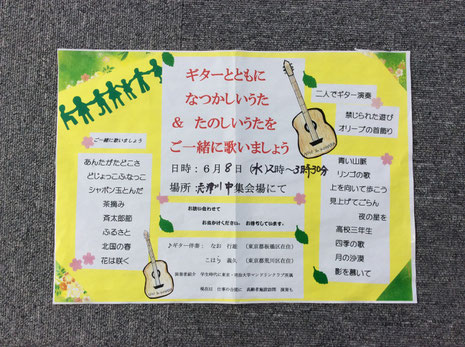 ギターとともに
なつかしいうた
& たのしいうたを
ご一緒に歌いましょう
日時：6月8日（水）2時～3時30分
場所 中集会場にて
お誘い合わせて
お出かけください。お待ちしています。
♪ギター伴奏： なお 行雄 （東京都板橋区在住）
こほり 義久 （東京都荒川区在住）
ご一緒に歌いましょう
あんたがたどこさ
どじょっこふなっこ
シャボン玉とんだ
茶摘み
斉太郎節
ふるさと
北国の春
花は咲く
二人でギター演奏
禁じられた遊び
オリーブの首飾り
青い山脈
リンゴの歌
上を向いて歩こう
見上げてごらん
夜の星を
高校三年生
四季の歌
月の沙漠
影を慕いて